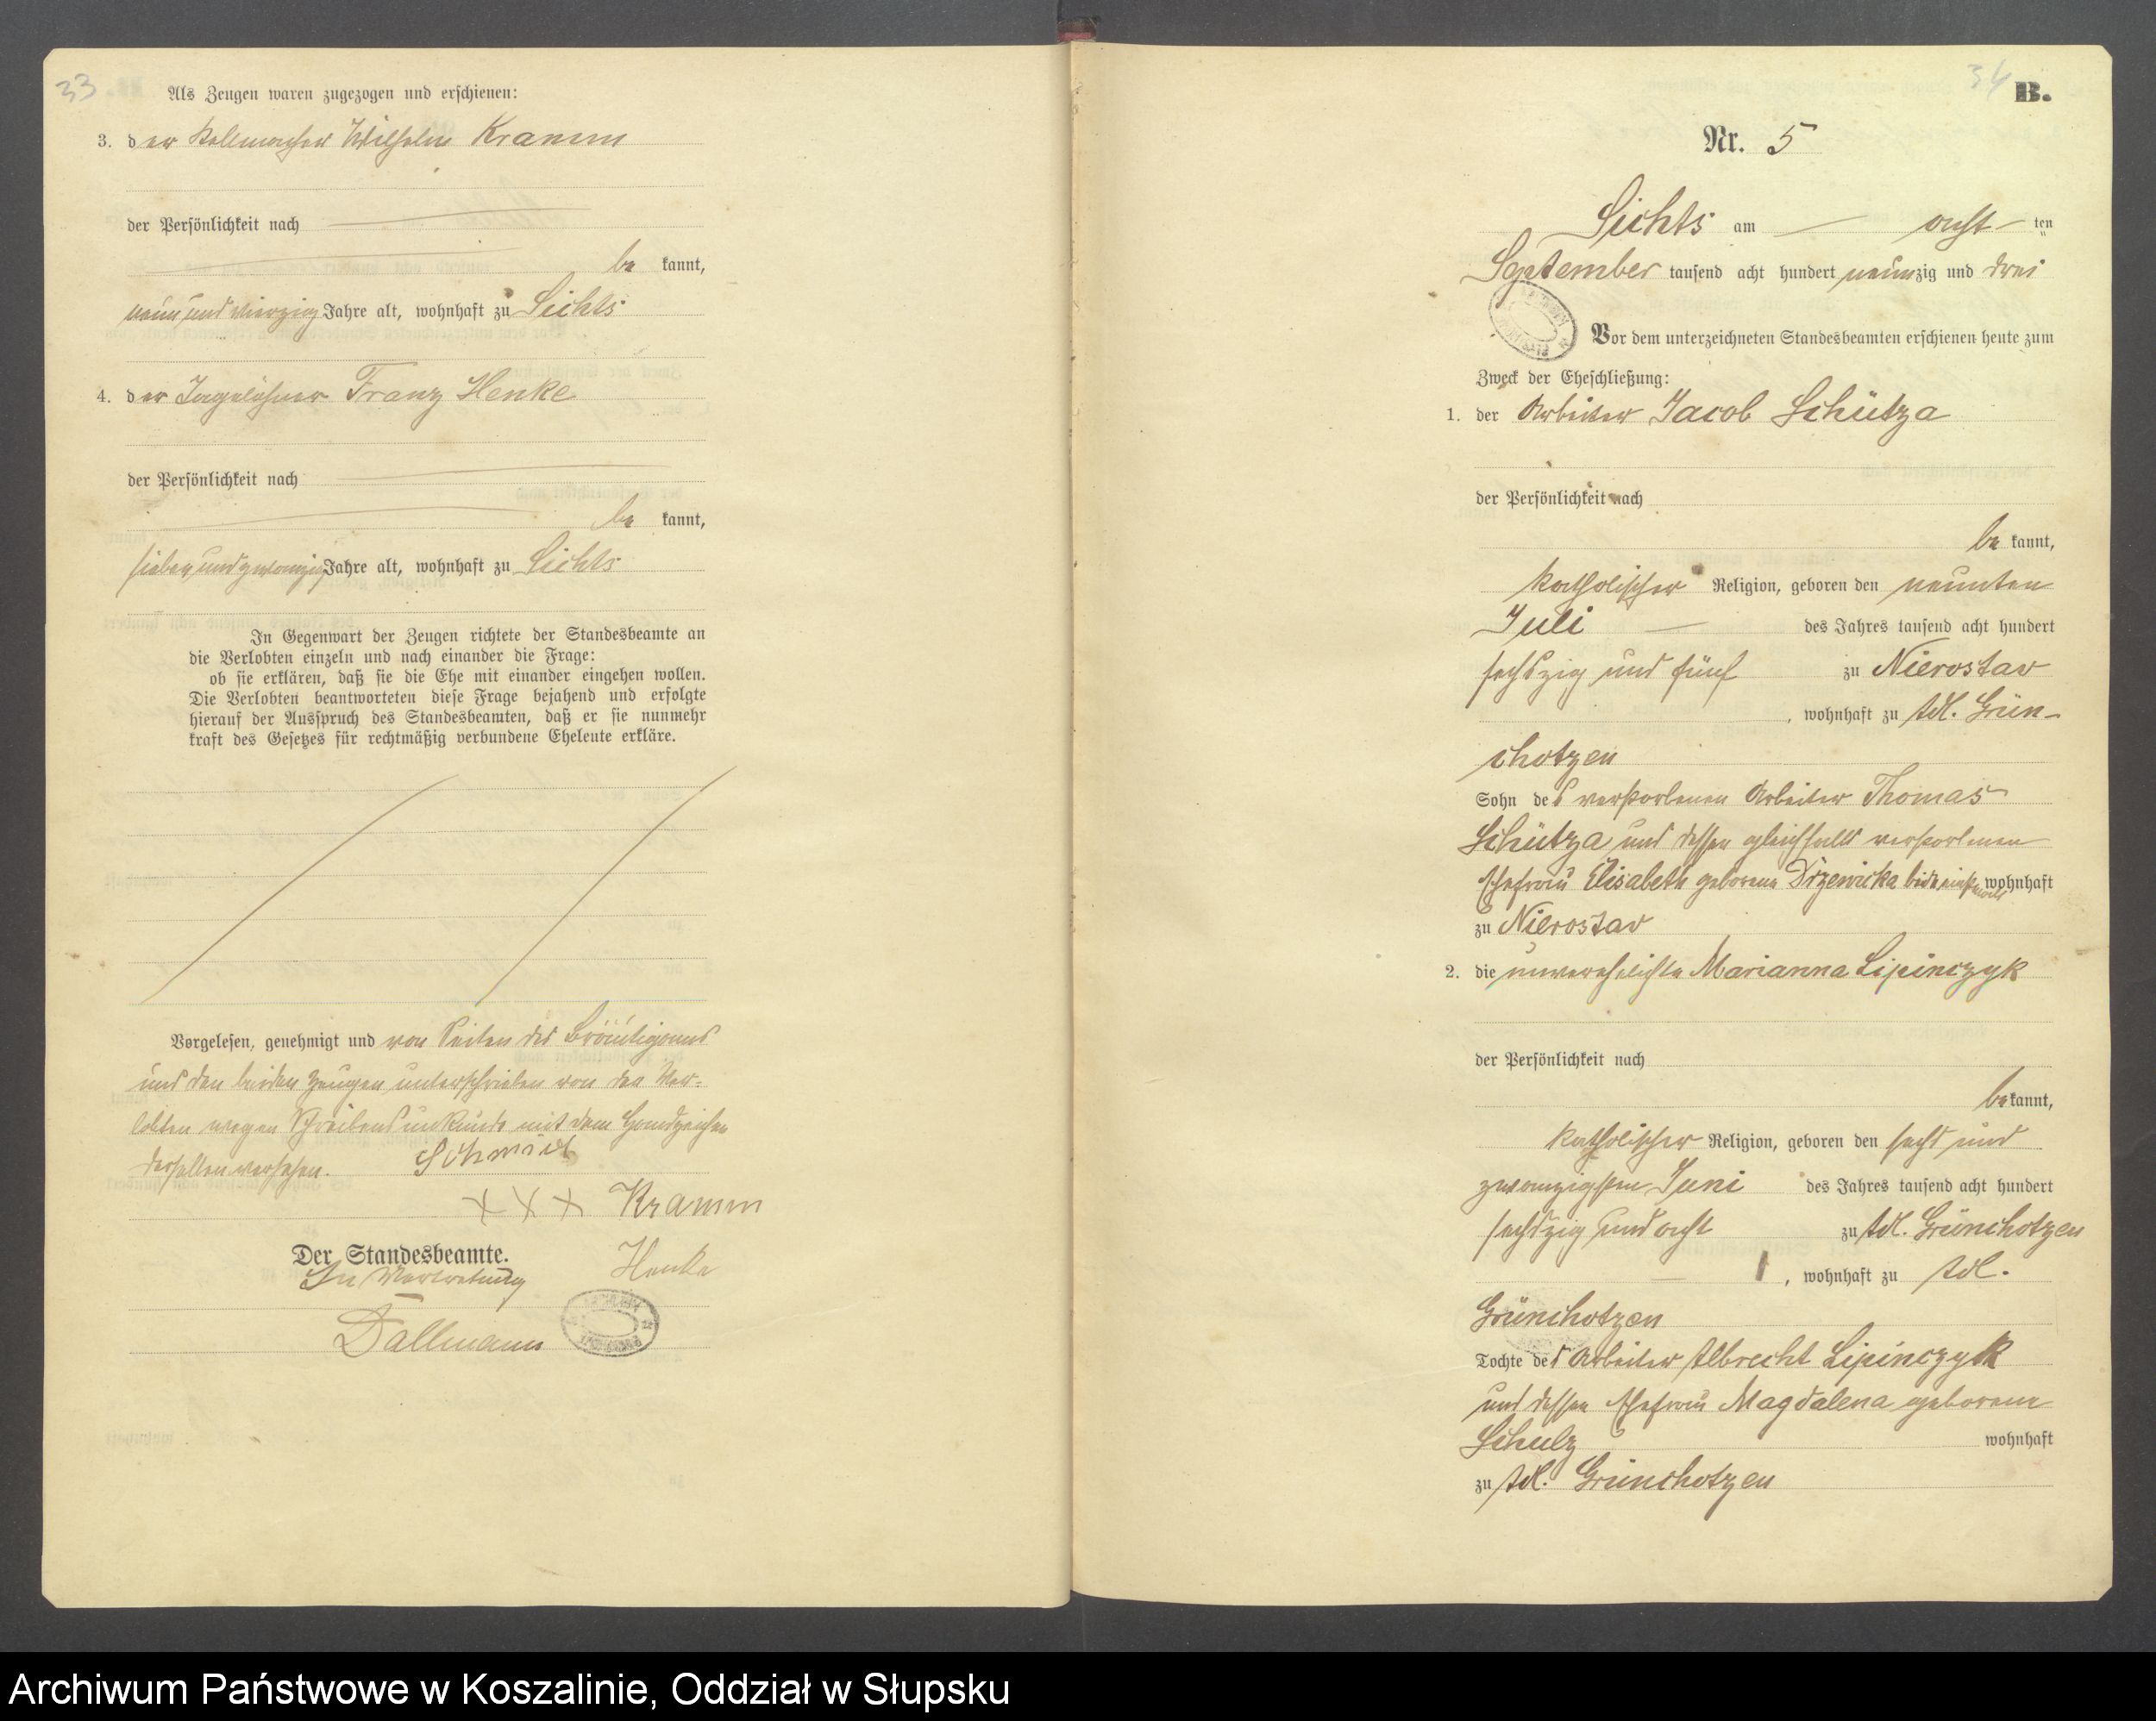 33
Als Zeugen waren zugezogen und erschienen:
3. der Wilhelm Kramm
der Persönlichkeit nach
be kannt,
neun und vierzig Jahre alt, wohnhaft zu Sichts
4. der Tagelöhner Franz Henke
der Persönlichkeit nach
be kannt,
sieben und zwanzig Jahre alt, wohnhaft zu Sichts
In Gegenwart der Zeugen richtete der Standesbeamte an
die Verlobten einzeln und nach einander die Frage:
ob sie erklären, daß sie die Ehe mit einander eingehen wollen.
Die Verlobten beantworteten diese Frage bejahend und erfolgte
hierauf der Ausspruch des Standesbeamten, daß er sie nunmehr
kraft des Gesetzes für rechtmäßig verbundene Eheleute erkläre.
Vorgelesen, genehmigt und von Seiten des Bräutigams
und den beiden Zeugen unterschrieben von der Ver-
lobten wegen Schreibensunkunde mit dem Handzeichen
derselben versehen. Schmidt
+ + + Kramm
Der Standesbeamte.
In Vertretung Henke
Dallmann
34 B.
Nr. 5
Sichts am acht ten
September tausend acht hundert neunzig und drei
Vor dem unterzeichneten Standesbeamten erschienen heute zum
Zweck der Eheschließung:
1. der Arbeiter Jacob Schütza
der Persönlichkeit nach
be kannt,
katholischer Religion, geboren den neunten
Juli des Jahres tausend acht hundert
sechszig und fünf zu Nierostaw
, wohnhaft zu Adl. Grün-
chotzen
Sohn des verstorbenen Arbeiter Thomas
Schütza und dessen gleichfalls verstorbenen
Ehefrau Elisabeth geborene Drzewicka beide wohnhaft
zu Nierostaw
2. die unverehelichte Marianna Lipinczyk
der Persönlichkeit nach
bekannt,
katholischer Religion, geboren den sechs und
zwanzigsten Juni des Jahres tausend acht hundert
sechszig und acht zu Adl. Grünchotzen
, wohnhaft zu Adl.
Grünchotzen
Tochte des Arbeiter Albrecht Lipinczyk
und dessen Ehefrau Magdalena geborene
Schulz wohnhaft
zu Adl. Grünchotzen
Archiwum Państwowe w Koszalinie, Oddział w Słupsku